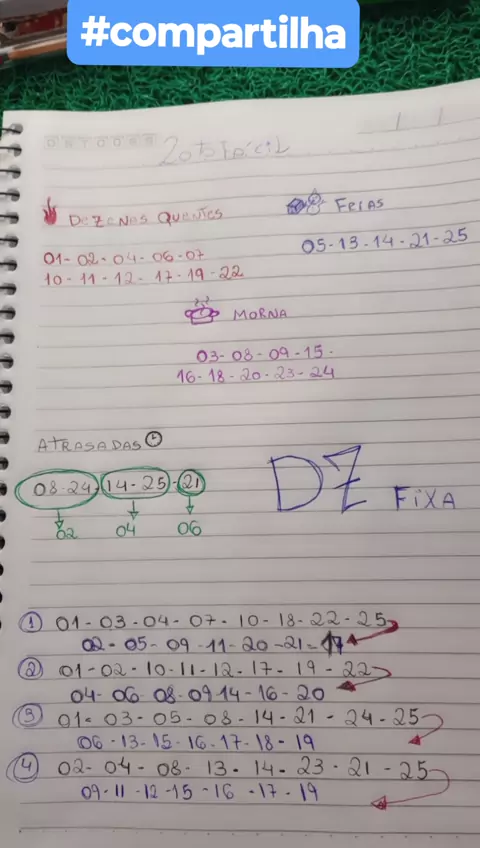 #compartilha
Lotofácil
DEZENAS QUENTES
FRIAS
01- 02- 04- 06- 07
10 - 11 - 12 - 17 - 19 - 22
05 - 13 - 14 - 21 - 25
MORNA
03- 08- 09 - 15 -
16 - 18 - 20 - 23 - 24
ATRASADAS
08-24-14-25-21
02 04 06
DZ FIXA
1 01 - 03 - 04 - 07 - 10 - 18 - 22 - 25
02- 05 - 09 - 11 - 20 - 21 - 17
2 01 - 02 - 10 - 11 - 12 - 17 - 19 - 22
04- 06 08- 09 14 - 16 - 20
3 01- 03 - 05 - 08 - 14 - 21 - 24 - 25
06 - 13 - 15 - 16 - 17 - 18 - 19
4 02 - 04 - 08 - 13 - 14 - 23 - 21 - 25
09 - 11 - 12 - 15 - 16 - 17 - 19